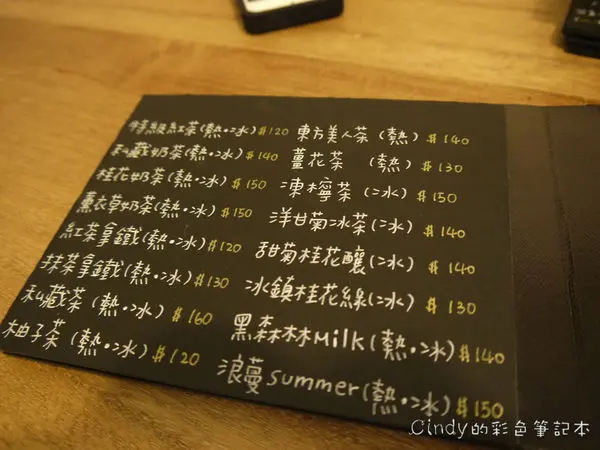 特級紅茶(熱·冰) $120
私藏奶茶(熱·冰) $140
桂花奶茶(熱·冰) $150
薰衣草奶茶(熱·冰) $150
紅茶拿鐵(熱·冰) $120
抹茶拿鐵(熱·冰) $130
私藏茶(熱·冰) $160
柚子茶(熱·冰) $120
東方美人茶(熱) $140
薑花茶(熱) $130
凍檸茶(冰) $150
洋甘菊冰茶(冰) $140
甜菊桂花釀(冰) $140
冰鎮桂花線(冰) $130
黑森林Milk(熱·冰) $140
浪蔓summer(熱·冰) $150
Cindy的彩色筆記本